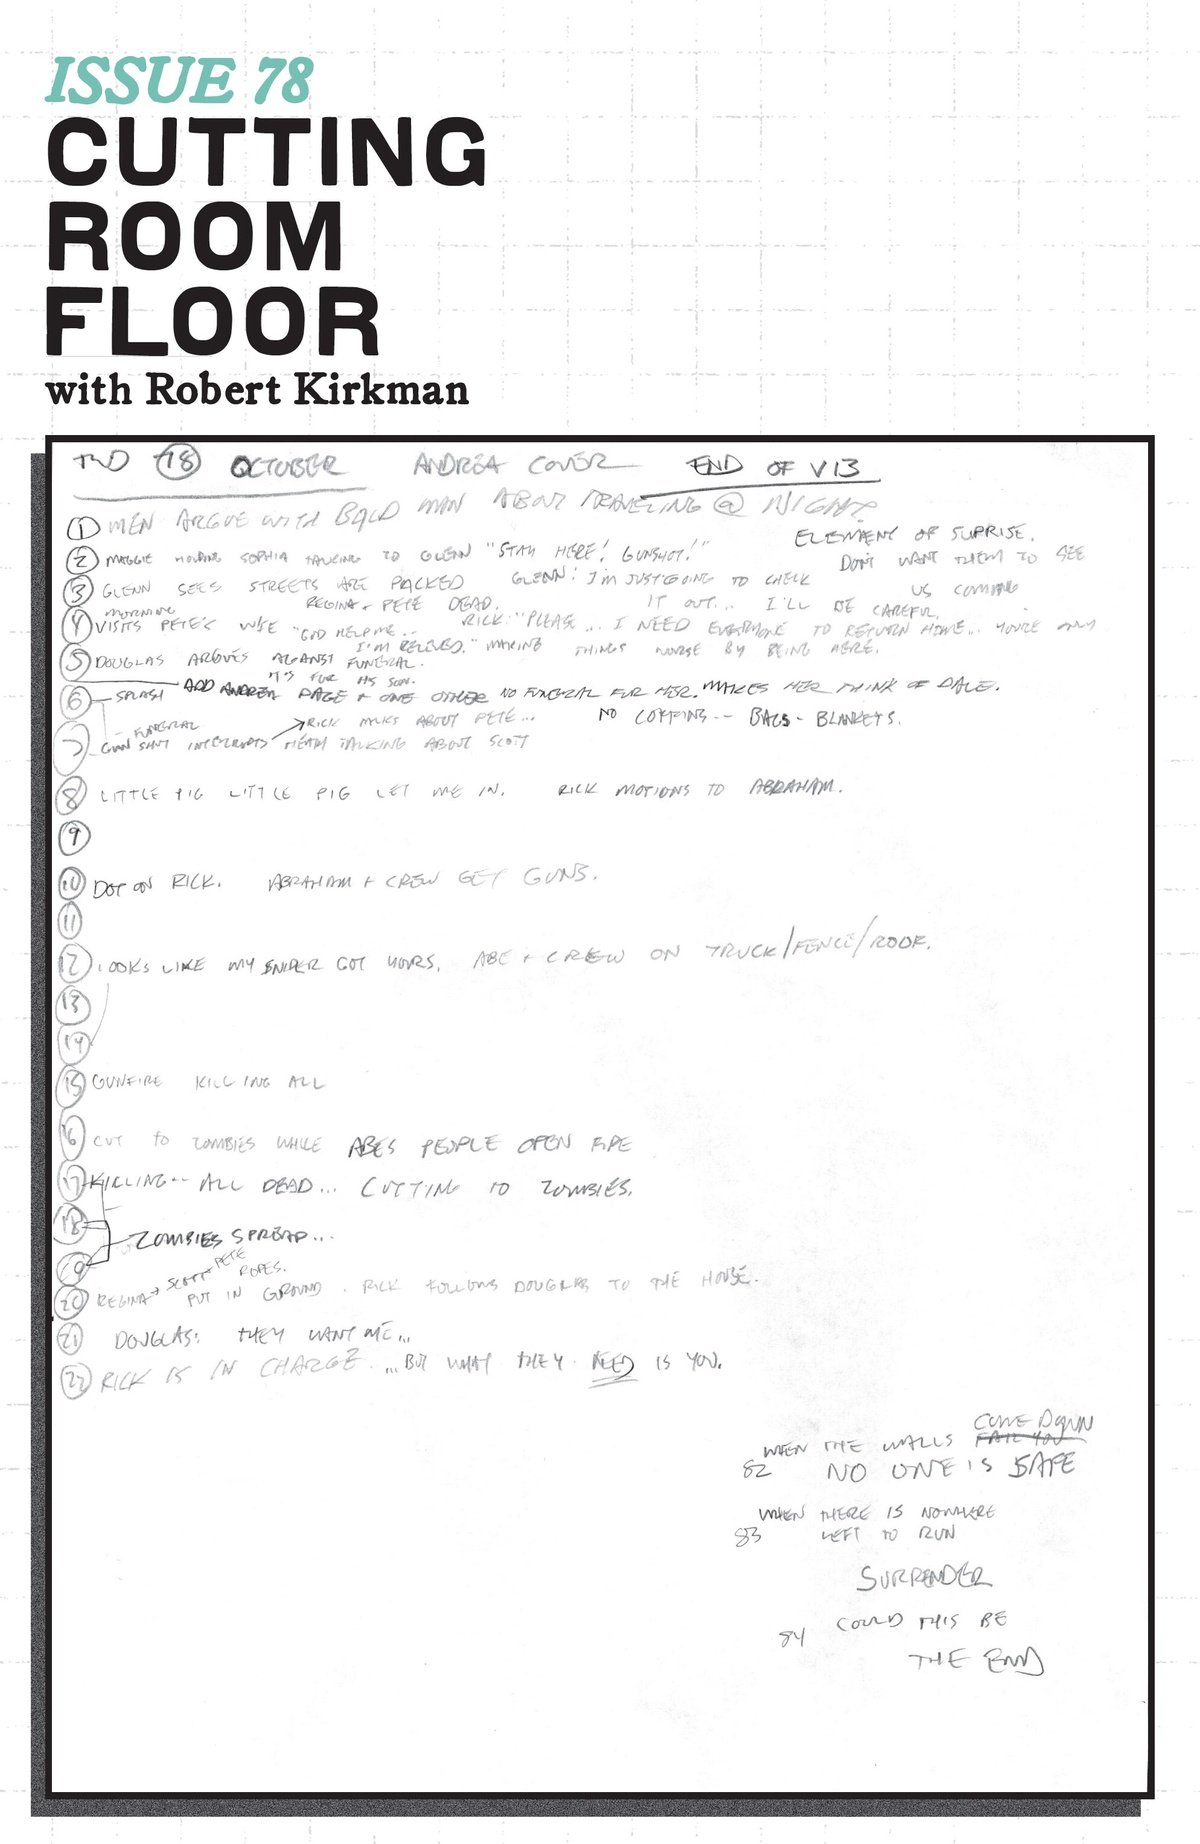 ISSUE 78
CUTTING
ROOM
FLOOR
with Robert Kirkman
TWD 78 OCTOBER ANDREA COVER END OF V13
1 MEN ARGUE WITH BALD MAN ABOUT TRAVELING @ NIGHT.
ELEMENT OF SUPRISE.
2 MAGGIE HOLDING SOPHIA TALKING TO GLENN "STAY HERE! GUNSHOT!" DON'T WANT THEM TO SEE
3 GLENN SEES STREETS ARE PACKED GLENN: I'M JUST GOING TO CHECK US COMING
REGINA + PETE DEAD. IT OUT... I'LL BE CAREFUL.
MORNING
4 VISITS PETE'S WIFE "GOD HELP ME... RICK: "PLEASE... I NEED EVERYONE TO RETURN HOME... YOU'RE ONLY
I'M RELIEVED." MAKING THINGS WORSE BY BEING HERE.
5 DOUGLAS ARGUES AGAINST FUNERAL.
IT'S FOR HIS SON.
6 SPLASH ADD ANDREA PAGE + ONE OTHER NO FUNERAL FOR HER. MAKES HER THINK OF DALE.
FUNERAL RICK TALKS ABOUT PETE... NO COFFINS-- BAGS - BLANKETS.
7 GUN SHOT INTERRUPTS HEATH TALKING ABOUT SCOTT
8 LITTLE PIG LITTLE PIG LET ME IN. RICK MOTIONS TO ABRAHAM.
9
10 DOT ON RICK. ABRAHAM + CREW GET GUNS.
11
12 LOOKS LIKE MY SNIPER GOT YOURS. ABE + CREW ON TRUCK/FENCE/ROOF.
13
14
15 GUNFIRE KILLING ALL
16 CUT TO ZOMBIES WHILE ABES PEOPLE OPEN FIRE
17 KILLING-- ALL DEAD... CUTTING TO ZOMBIES.
18
ZOMBIES SPREAD...
19
20 REGINA + SCOTT + PETE PUT IN GROUND. RICK FOLLOWS DOUGLAS TO THE HOUSE.
ROPES.
21 DOUGLAS: THEY WANT ME...
22 RICK IS IN CHARGE. ...BUT WHAT THEY NEED IS YOU.
COME DOWN
WHEN THE WALLS FAIL YOU
82 NO ONE IS SAFE
WHEN THERE IS NOWHERE
83 LEFT TO RUN
SURRENDER
84 COULD THIS BE
THE END